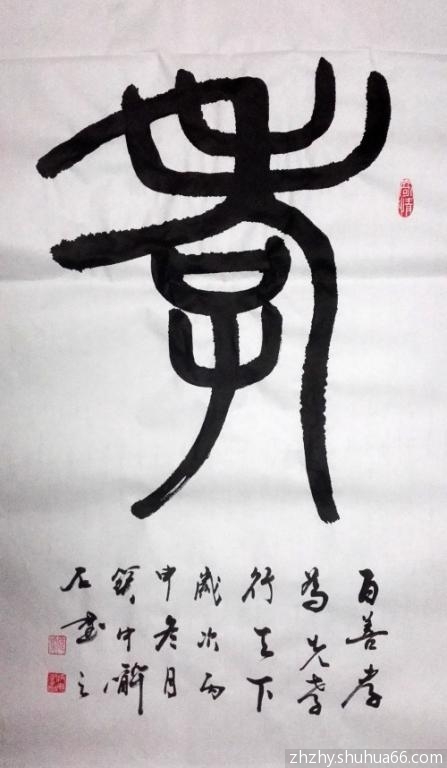 孝
百善孝
為先孝
行天下
歲次丙
申月
中醉
石書之
zhzhy.shuhua66.com